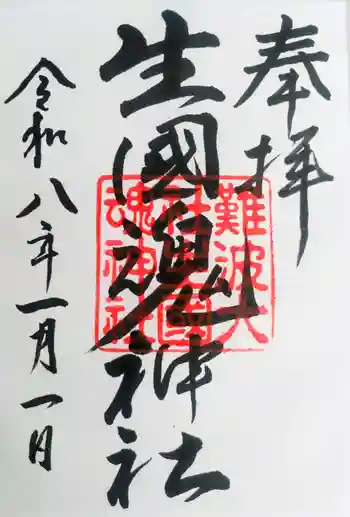 奉拝
生國魂神社
難波大
社生國
魂神社
令和八年一月一日